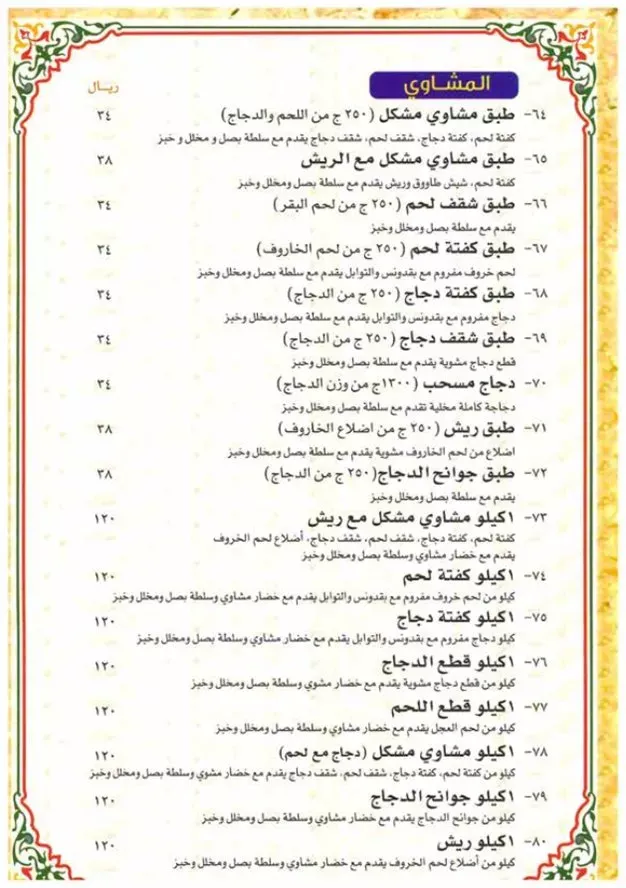 المشاوي
ريال
٦٤- طبق مشاوي مشكل (٢٥٠ ج من اللحم والدجاج) ٣٤
كفتة لحم، كفتة دجاج، شقف لحم، شقف دجاج يقدم مع سلطة بصل و مخلل و خبز
٦٥- طبق مشاوي مشكل مع الريش ٣٨
كفتة لحم، شيش طاووق وريش يقدم مع سلطة بصل ومخلل وخبز
٦٦- طبق شقف لحم (٢٥٠ ج من لحم البقر) ٣٤
يقدم مع سلطة بصل ومخلل وخبز
٦٧- طبق كفتة لحم (٢٥٠ ج من لحم الخاروف) ٣٤
لحم خروف مفروم مع بقدونس والتوابل يقدم مع سلطة بصل ومخلل وخبز
٦٨- طبق كفتة دجاج (٢٥٠ ج من الدجاج) ٣٤
دجاج مفروم مع بقدونس والتوابل يقدم مع سلطة بصل ومخلل وخبز
٦٩- طبق شقف دجاج (٢٥٠ ج من الدجاج) ٣٤
قطع دجاج مشوية يقدم مع سلطة بصل ومخلل وخبز
٧٠- دجاج مسحب (١٣٠٠ج من وزن الدجاج) ٣٤
دجاجة كاملة مخلية تقدم مع سلطة بصل ومخلل وخبز
٧١- طبق ريش (٢٥٠ ج من اضلاع الخاروف) ٣٨
اضلاع من لحم الخاروف مشوية يقدم مع سلطة بصل ومخلل وخبز
٧٢- طبق جوانح الدجاج(٢٥٠ ج من الدجاج) ٣٨
يقدم مع سلطة بصل ومخلل وخبز
٧٣- ١كيلو مشاوي مشكل مع ريش ١٢٠
كفتة لحم، كفتة دجاج، شقف لحم، شقف دجاج، أضلاع لحم الخروف
يقدم مع خضار مشاوي وسلطة بصل ومخلل وخبز
٧٤- ١كيلو كفتة لحم ١٢٠
كيلو من لحم خروف مفروم مع بقدونس والتوابل يقدم مع خضار مشاوي وسلطة بصل ومخلل وخبز
٧٥- ١كيلو كفتة دجاج ١٢٠
كيلو دجاج مفروم مع بقدونس والتوابل يقدم مع خضار مشاوي وسلطة بصل ومخلل وخبز
٧٦- ١كيلو قطع الدجاج ١٢٠
كيلو من قطع دجاج مشوية يقدم مع خضار مشوي وسلطة بصل ومخلل وخبز
٧٧- ١كيلو قطع اللحم ١٢٠
كيلو من لحم العجل يقدم مع خضار مشاوي وسلطة بصل ومخلل وخبز
٧٨- ١كيلو مشاوي مشكل (دجاج مع لحم) ١٢٠
كيلو من كفتة لحم، كفتة دجاج، شقف لحم، شقف دجاج يقدم مع خضار مشوي وسلطة بصل ومخلل وخبز
٧٩- ١كيلو جوانح الدجاج ١٢٠
كيلو من جوانح الدجاج يقدم مع خضار مشاوي وسلطة بصل ومخلل وخبز
٨٠- ١كيلو ريش ١٢٠
كيلو من أضلاع لحم الخروف يقدم مع خضار مشاوي وسلطة بصل ومخلل وخبز